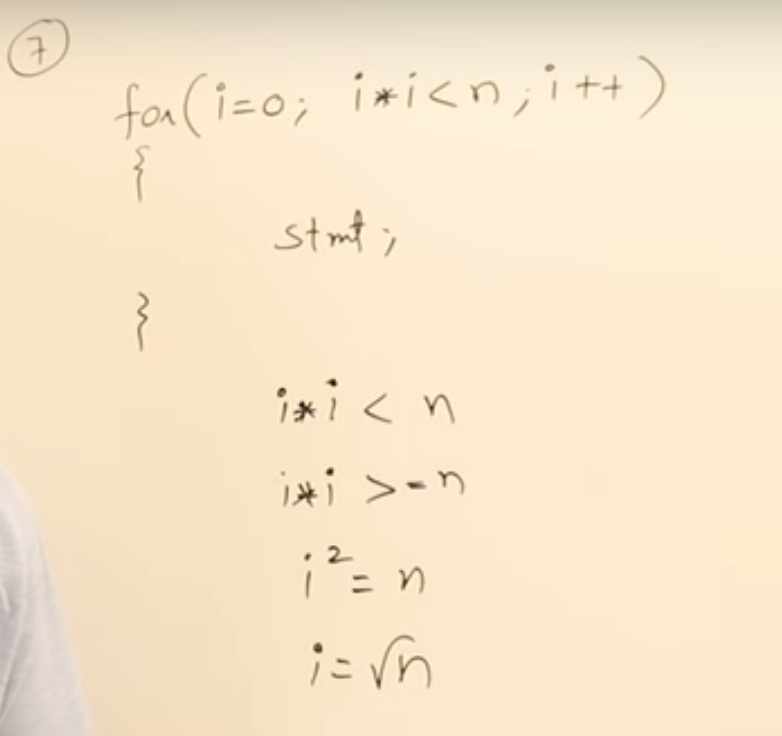 7
for(i=0; i*i<n; i++)
{
stmt;
}
i*i < n
i*i >= n
i² = n
i = √n